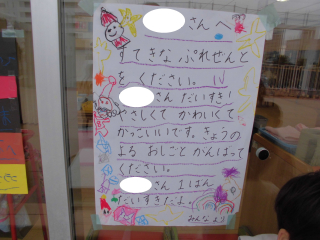 さんへ
すてきな ぷれせんと
を ください。
さん だいすき!
やさしくて かわいくて
かっこいいです。きょうの
よる おしごと がんばって
ください。
さん 1ばん
だいすきだよ。
みんなより